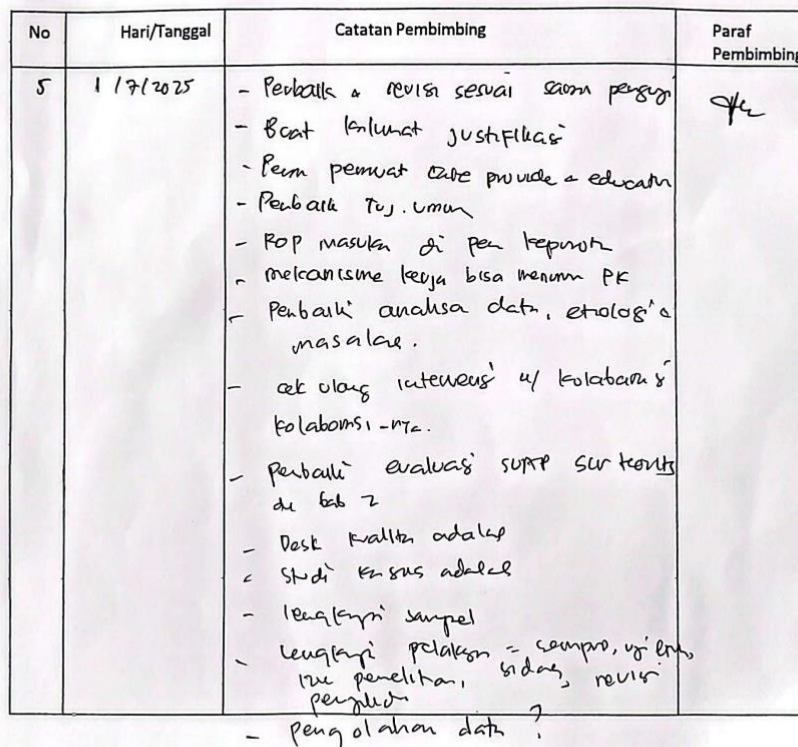 No Hari/Tanggal Catatan Pembimbing Paraf Pembimbing
5 1/7/2025 - Perbaiki & revisi sesuai saran penguji
- Buat kalimat justifikasi
- Peran perawat care provide & educator
- Perbaiki Tuj. umum
- masukan di
- mekanisme kerja bisa menurun PK
- Perbaiki analisa data, etiologi &
masalah.
- cek ulang intervensi u/ kolaborasi
kolaborasi-nya.
- perbaiki evaluasi
bab 2
- Desk kualita adalah
- Studi kasus adalah
- lengkapi sampel
- lengkapi = sempro,
penelitian, sidang, revisi
- pengolahan data ?